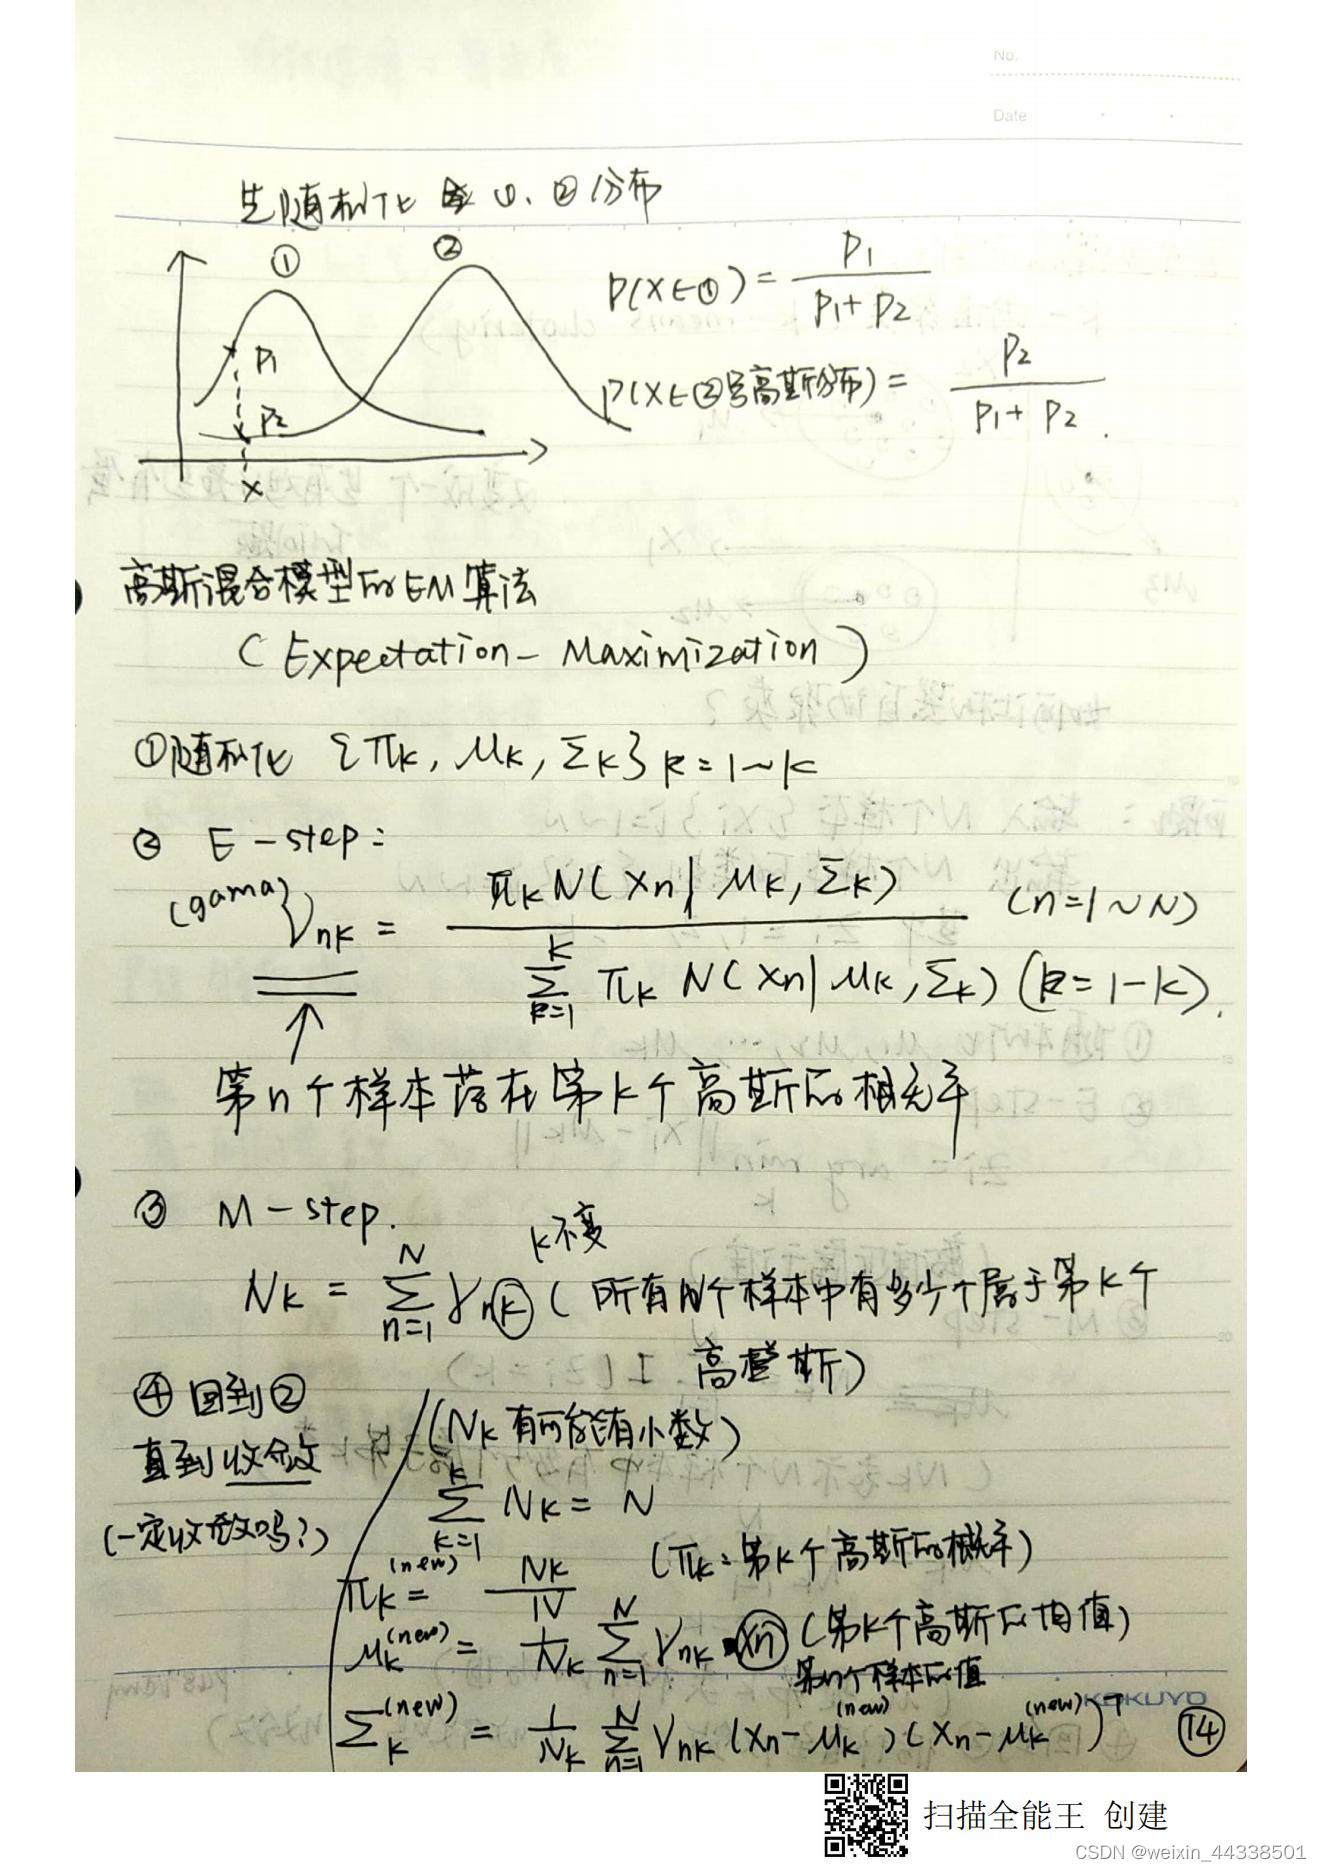 No.
Date
先随机化 ①、②分布
① ②
P(X∈①) = p1 / (p1 + p2)
p1
P(X∈②号高斯分布) = p2 / (p1 + p2).
p2
x
高斯混合模型的EM算法
(Expectation - Maximization)
①随机化 {πk, μk, Σk} k = 1~K
② E-step:
(gama) γnk = πk N(xn | μk, Σk) / Σ_{k=1}^{K} πk N(xn | μk, Σk) (n=1~N) (k=1-K).
第n个样本落在第k个高斯的概率
③ M-step.
k不变
Nk = Σ_{n=1}^{N} γnk ( 所有N个样本中有多少个属于第k个
高斯)
④ 回到②
直到收敛
(一定收敛吗?)
(Nk 有可能有小数)
Σ_{k=1}^{K} Nk = N
πk^(new) = Nk / N (πk: 第k个高斯的概率)
μk^(new) = 1/Nk Σ_{n=1}^{N} γnk · xn (第k个高斯的均值)
第n个样本的值
Σk^(new) = 1/Nk Σ_{n=1}^{N} γnk (xn - μk^(new)) (xn - μk^(new))^T
KOKUYO
14
扫描全能王 创建
CSDN @weixin_44338501